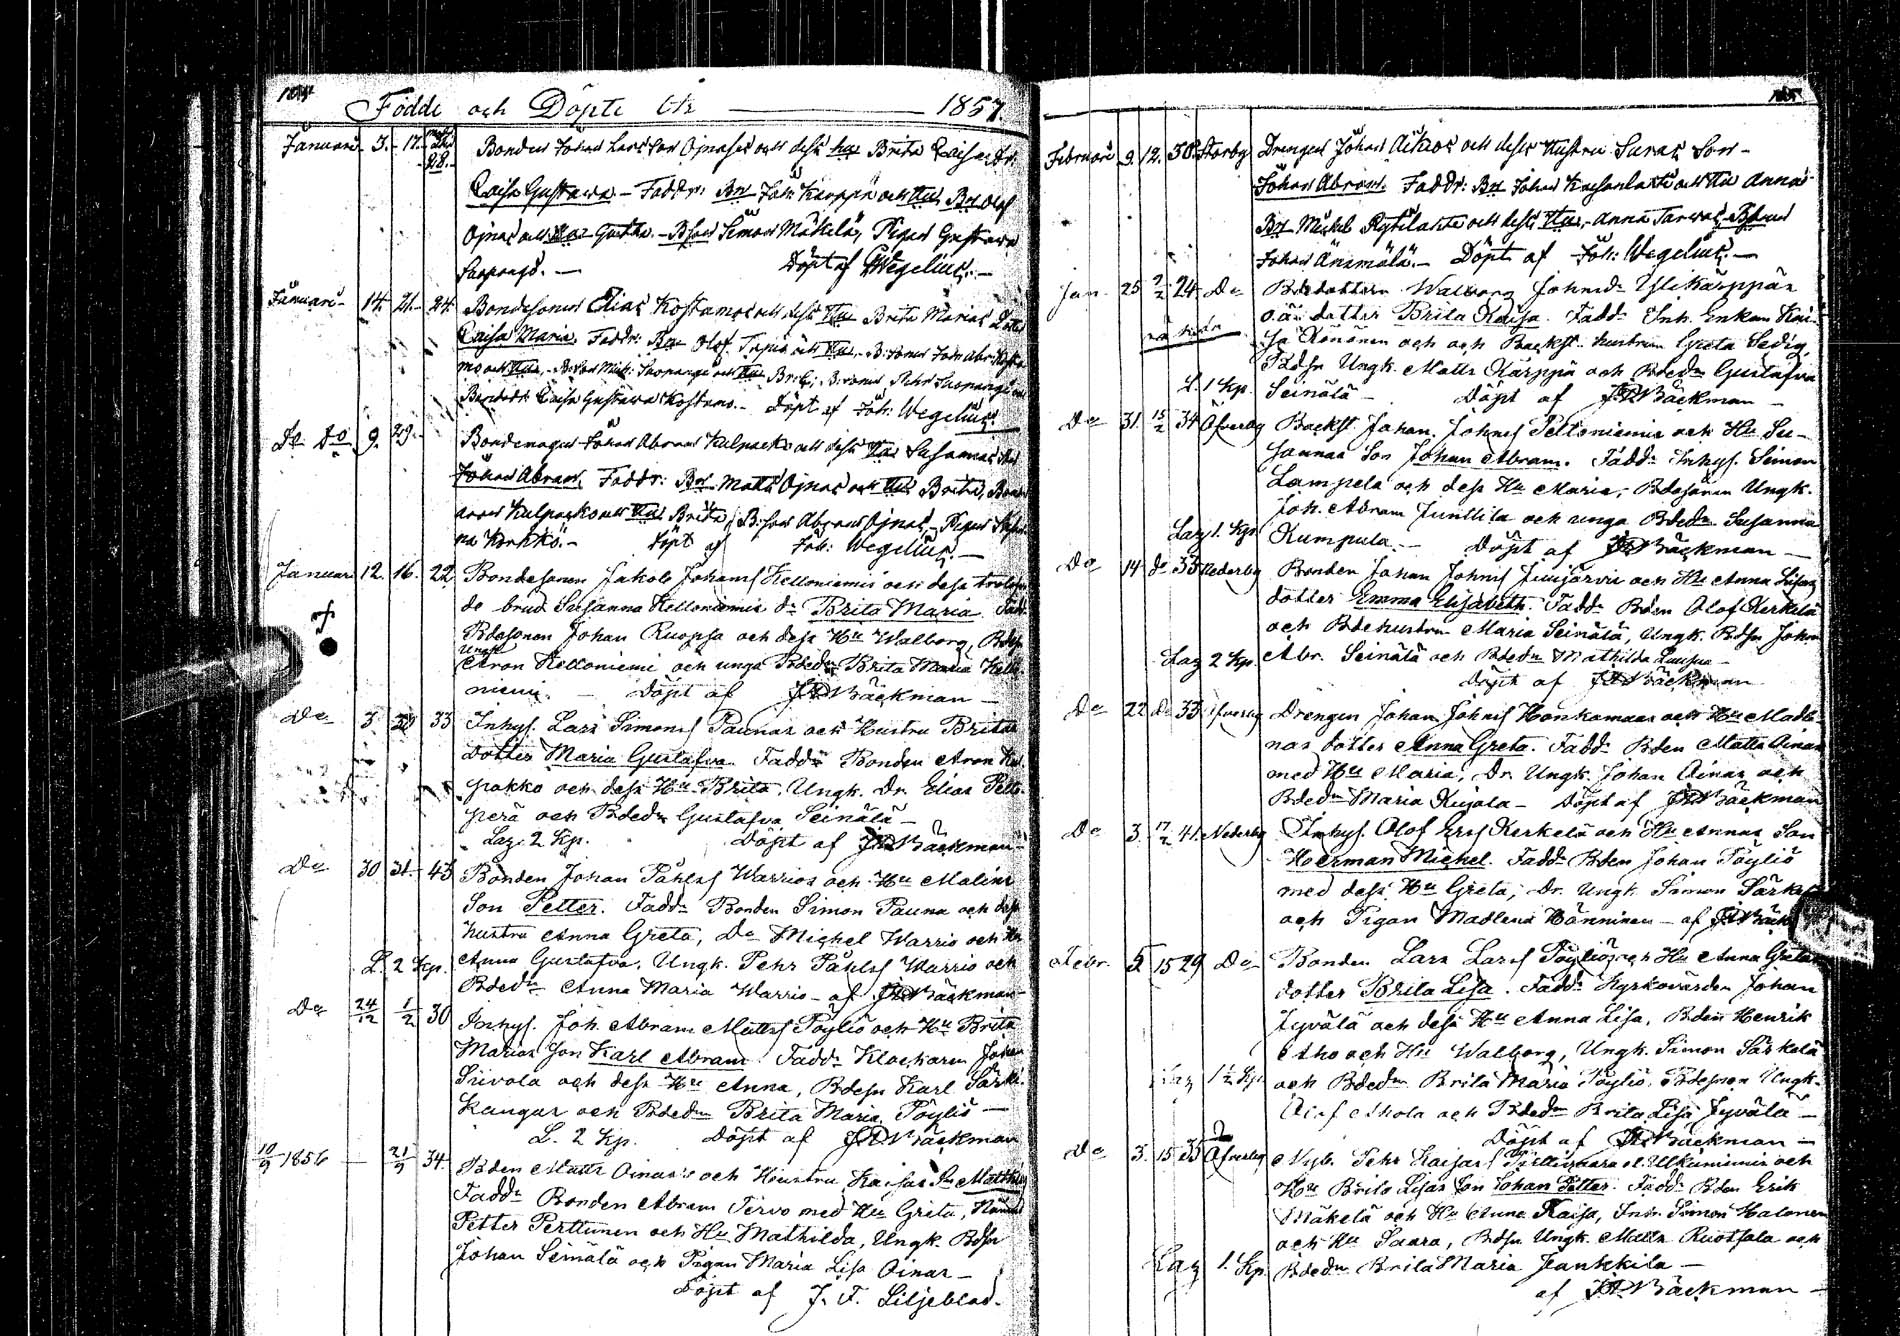 184
Födde och Döpte År — 1857.
Januari 3. 17. 28. Bonden Johan Larsson Ojnases och dess hu Brita Caisas dr.
Caisa Gustava – Faddr: Bn Joh: Karppa och Hu, Bn Olof
Ojnas och Hu Gretha. – B.son Simon Mäkelä, Pigan Gustava
Suopangi. — Döpt af J Wegelius. —
Januari 14. 21. 24. Bondesonen Elias Kostamos och dess Hu Brita Marias Dotter
Caisa Maria. Faddr: Bn Olof Tapio och Hu,
mo och Hu,
Bondedr. Caisa Gustava Kostamo. – Döpt af Joh: Wegelius.
Do Do 9. 29. Bondemågen Johan Abram Kulpacks och dess Hu Susannas son
Johan Abram. Faddr: Bn Matts Ojnas och Hu Brita, Bonden
Aron Kulpacko och Hu Brita, B:son Abram Ojnas, – Pigan
na Korkko. – Döpt af Joh: Wegelius. —
Januari 12. 16. 22 Bondesonen Jakob Johans Kelloniemis och dess trolofva-
de brud Susanna Kelloniemis dr Brita Maria. Fadd:
Bdesonen Johan Ruopsa och dess Hu Walborg, Bdsn
Ungk. Aron Kelloniemi och unga Bdedn Brita Maria Kello-
niemi. — Döpt af J F Bäckman —
Do 3. 20 33 Inhys. Lars Simons Paunas och Hustru Britas
dotter Maria Gustafva. Faddr Bonden Aron Kul-
pakko och dess Hu Brita, Ungk. Dr. Elias Pelto-
perä och Bdedn Gustafva Seinälä —
Lag. 2 Kp. Döpt af J F Bäckman —
Do 30 31 43 Bonden Johan Påhls Warrios och Hu Malins
Son Petter. Faddr Bonden Simon Pauna och dess
hustru Anna Greta, Do Michel Warrio och Hu
L. 2 Kp. Anna Gustafva, Ungk. Pehr Påhls Warrio och
Bdedn Anna Maria Warrio – af J F Bäckman –
Do 24/12 1/2 30 Inhys. Joh. Abram Matts Pöyliö och Hu Brita
Marias son Karl Abram. Faddr Klockaren Johan
Siivola och dess Hu Anna, Bdesn Karl Särki-
kangas och Bdedn Brita Maria Pöyliö —
L. 2 Kp. Döpt af J F Bäckman
10/9 1856 — 21/9 34. Bden Matts Oinas's och Hustru Kajsas Sn Matthias
Faddr Bonden Abram Tervo med Hu Greta, Nämnd
Petter Perttunen och Hu Mathilda, Ungk. Bdsn
Johan Seinälä och Pigan Maria Lisa Oinas —
Döpt af J. F. Liljeblad.
185
Februari 9. 12. 30. Storby Drengen Johan Aikios och dess Hustru Saras Son –
Johan Abram. Faddr: Bn Johan och Hu Anna
Bn Mickel Kytilasta och dess Hu, – Anna Tarvas,
Johan Änimälä. – Döpt af Joh: Wegelius. —
Jan. 25 2/2 24 Do Bdedottern Walborg Johnsdr Ylikärppän
o.ä. dotter Brita Kaisa. Faddr Inh. Enkan Kai-
sa Könönen och och Backst. hustrun Greta Sedig,
Bdsn Ungk. Matts Kärppä och Bdedn Gustafva
L. 1 Kp. Seinälä — Döpt af J F Bäckman —
Do 31. 15/2 34 Öfverby Backst. Johan Johns Peltoniemis och Hu Su-
sannas Son Johan Abram. Faddr Inhys. Simon
Lampela och dess Hu Maria, Bdesonen Ungk.
Joh. Abram Junttila och unga Bdedn Susanna
Lag 1. Kp. Kumpula. — Döpt af J F Bäckman —
Do 14 do 33 Nederby Bonden Johan Johns Juujärvis och Hu Anna Lisas
dotter Emma Elisabeth. Faddr Bden Olof Kerkelä
och Bdehustrun Maria Seinälä, Ungk. Bdsn Johan
Lag 2 Kp. Abr. Seinälä och Bdedn Mathilda Luusua —
Döpt af J F Bäckman
Do 22 Do 33 Öfverby Drengen Johan Johns Honkamaas och Hu Madle-
nas dotter Anna Greta. Faddr Bden Matts Oinas
med Hu Maria, Dr. Ungk. Johan Oinas och
Bdedn Maria Kujala – Döpt af J F Bäckman
Do 3. 17/2 41. Nederby Inhys. Olof Ers Kerkelä och Hu Annas Son
Herman Michel. Faddr Bden Johan Pöyliö
med dess Hu Greta, Dr. Ungk. Simon Särkelä
och Pigan Madlena Hänninen – af J F Bäck
Febr. 5 15 29 Do Bonden Lars Lars Pöyliös och Hu Anna Gretas
dotter Brita Lisa. Faddr Kyrkovärden Johan
Jyvälä och dess Hu Anna Lisa, Bden Henrik
Aho och Hu Walborg, Ungk. Simon Särkelä
Lag 1½ Kp. och Bdedn Brita Maria Pöyliö, Bdesonen Ungk.
Olof Ahola och Bdedn Brita Lisa Jyvälä —
Döpt af J F Bäckman —
Do 3. 15 35 Öfverby Nyb. Pehr Kaisas el. Ulkuniemis och
Hu Brita Lisas son Johan Petter. Faddr Bden Erik
Mäkelä och Hu Anna Kaisa, Inh. Simon Halonen
och Hu Saara, Bdsn Ungk. Matts Ruotsala och
Lag 1. Kp. Bdedn Brita Maria Jankkila —
af J F Bäckman —